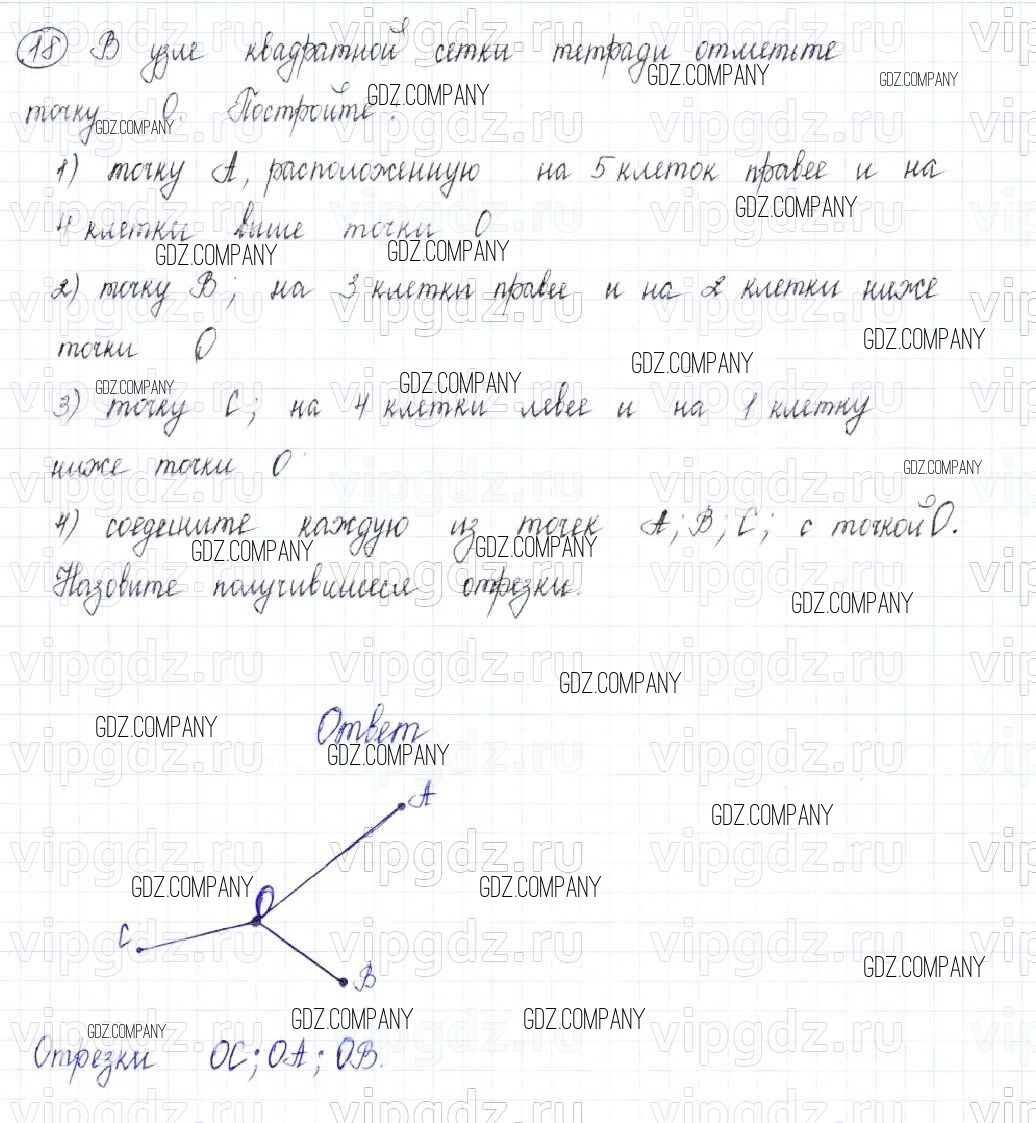 18 В узле квадратной сетки тетради отметьте
точку О. Постройте:
1) точку А, расположенную на 5 клеток правее и на
4 клетки выше точки О
2) точку В; на 3 клетки правее и на 2 клетки ниже
точки О
3) точку С; на 4 клетки левее и на 1 клетку
ниже точки О
4) соедените каждую из точек А; В; С; с точкой О.
Назовите получившиеся отрезки.
Ответ
А
О
С
В
Отрезки ОС; ОА; ОВ.
GDZ.COMPANY
vipgdz.ru